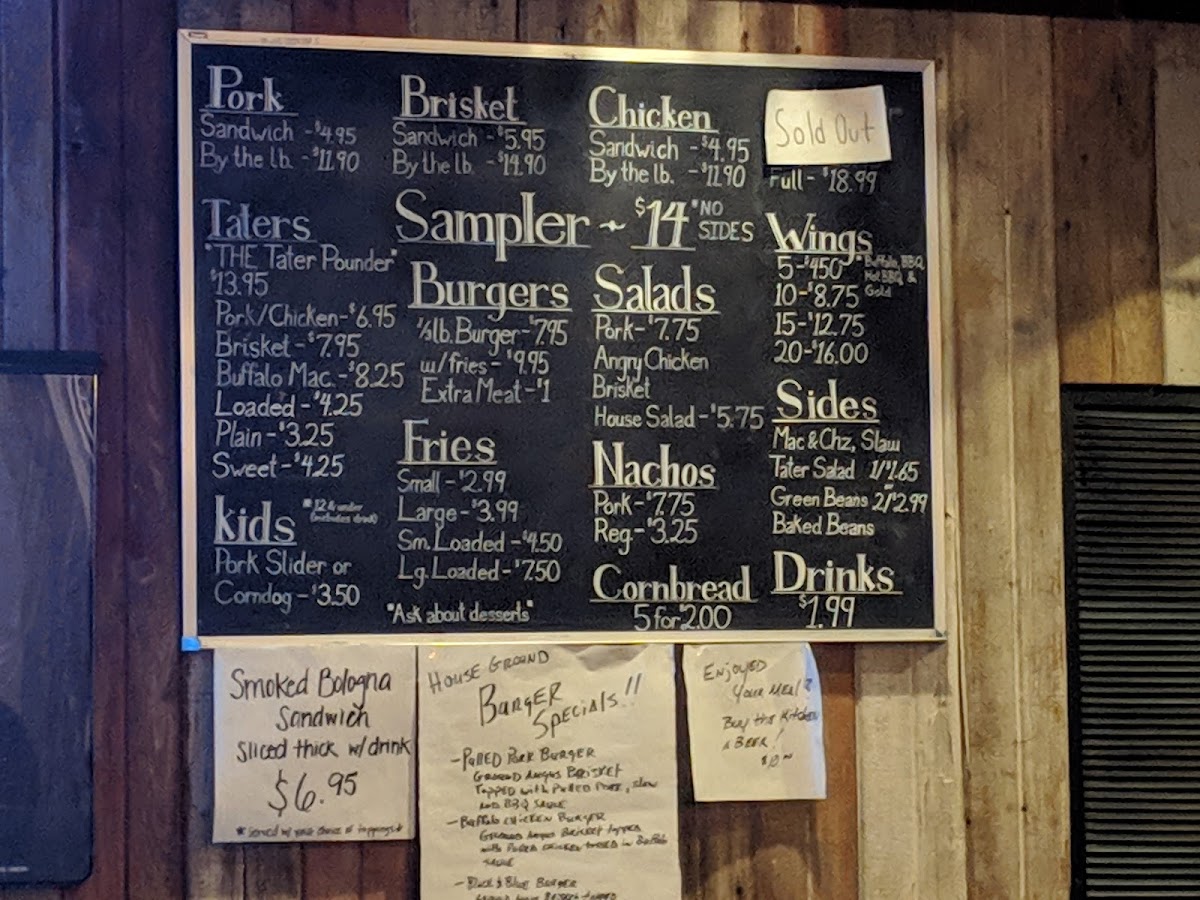 Pork
Sandwich - $4.95
By the lb. - $11.90
Brisket
Sandwich - $5.95
By the lb. - $14.90
Chicken
Sandwich - $4.95
By the lb. - $11.90
Sold Out
Full - $18.99
Sampler - $14 *NO SIDES
Taters
"THE Tater Pounder"
$13.95
Pork/Chicken - $6.95
Brisket - $7.95
Buffalo Mac. - $8.25
Loaded - $4.25
Plain - $3.25
Sweet - $4.25
kids *12 & under
(includes drink)
Pork Slider or
Corndog - $3.50
Burgers
⅓lb. Burger - $7.95
w/fries - $9.95
Extra Meat - $1
Fries
Small - $2.99
Large - $3.99
Sm. Loaded - $4.50
Lg. Loaded - $7.50
"Ask about desserts"
Salads
Pork - $7.75
Angry Chicken
Brisket
House Salad - $5.75
Nachos
Pork - $7.75
Reg - $3.25
Cornbread
5 for $2.00
Wings
*Buffalo, BBQ,
Hot BBQ &
Gold
5 - $4.50
10 - $8.75
15 - $12.75
20 - $16.00
Sides
Mac & Chz, Slaw
Tater Salad 1/$1.65
Green Beans 2/$2.99
Baked Beans
Drinks
$1.99
Smoked Bologna
Sandwich
Sliced thick w/drink
$6.95
*served w/ your choice of toppings*
HOUSE GROUND
BURGER
SPECIALS!!
- PULLED PORK BURGER
GROUND ANGUS BRISKET
TOPPED WITH PULLED PORK, slaw
AND BBQ SAUCE
- BUFFALO CHICKEN BURGER
GROUND ANGUS BRISKET TOPPED
with PULLED CHICKEN TOSSED IN BUFFALO
SAUCE
- BLACK & BLUE BURGER
ENJOYED
YOUR MEAL?
BUY THE KITCHEN
A BEER!